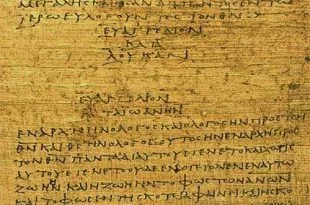 ΜΕΓΑΛΗϹΚΑΙΗϹΑΝΔΙΑΠΑΝΤΟϹΕΝΤΩ
ΙΕΡΩΕΥΛΟΓΟΥΝΤΕϹΤΟΝΘΝ
ΕΥΑΓΓΕΛΙΟΝ
ΚΑΤΑ
ΛΟΥΚΑΝ
ΕΥΑΓΓΕΛΙΟΝ
ΚΑΤΑΙΩΑΝΗΝ
ΕΝΑΡΧΗΗΝΟΛΟΓΟϹΚΑΙΟΛΟΓΟϹΗΝΠΡΟϹΤΟΝ
ΘΝΚΑΙΘϹΗΝΟΛΟΓΟϹΟΥΤΟϹΗΝΕΝΑΡΧΗΠΡΟϹ
ΤΟΝΘΝΠΑΝΤΑΔΙΑΥΤΟΥΕΓΕΝΕΤΟΚΑΙΧΩΡΙϹ
ΑΥΤΟΥΕΓΕΝΕΤΟΟΥΔΕΕΝΟΓΕΓΟΝΕΝΕΝΑΥΤΩ
ΖΩΗΗΝΚΑΙΗΖΩΗΗΝΤΟΦΩϹΤΩΝΑΝΩΝ